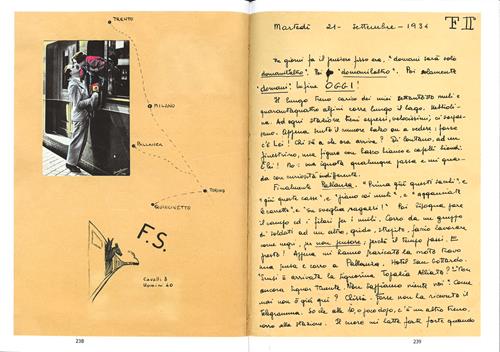 TRENTO
MILANO
PALLANZA
TORINO
F.S.
Cavalli 8
Uomini 40
238
Martedì 21 - Settembre - 1936
F II
giorni fa il pensiero fisso era: "domani sarà solo
domanilaltro". Poi "domanilaltro". Poi solamente
domani. Infine OGGI!
Il lungo treno carico dei miei settantotto muli e
quarantaquattro alpini corre lungo il lago,
Ad ogni stazione treni espressi, velocissimi, ci sorpas-
sano. Appena sento il rumore balzo a vedere; forse
c'è Lei! Chi sa a che ora arriva? Di lontano, ad un
finestrino, una figura con basco bianco e capelli biondi
Chi! No: una signora qualunque passa e mi guar-
da con curiosità indifferente.
Finalmente Pallanza. "Prima giù questi sacchi", e
"giù queste casse", e "piano coi muli", e "agganciate
le carrette", e "su sveglia ragazzi!" Poi bisogna fare
il campo ed i filari per i muli. Corro da un gruppo
di soldati ad un altro, grido, strepito, faccio lavorare
come negri, per non pensare; perché il tempo passi. E
passa! Appena mi hanno scaricato la moto
una pausa e corro a Pallanza. Hotel San Gottardo.
Scusi è arrivata la signorina Topalia Alliata? "Non
ancora Signor Tenente. Non sappiamo niente noi". Come
mai non è già qui? Chissà. Forse non ha ricevuto il
telegramma. So che alle 16, o poco dopo, c'è un altro treno,
corro alla stazione. Il cuore mi batte forte forte quando
239